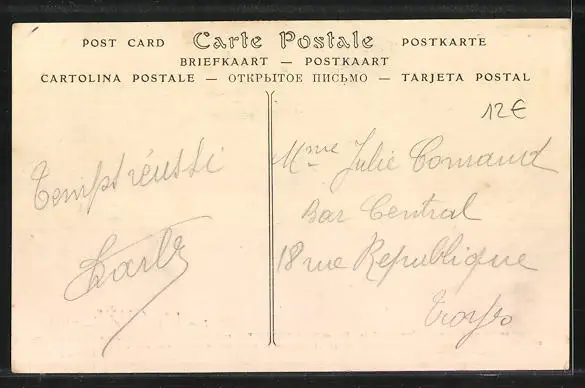 POST CARD Carte Postale POSTKARTE
BRIEFKAART — POSTKAART
CARTOLINA POSTALE — ОТКРЫТОЕ ПИСЬМО — TARJETA POSTAL
12€
Temps réussi
Mme Julie
Bar Central
18 rue Republique
Troyes